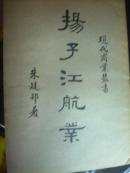 現代商業叢書
揚子江航業
朱建邦著